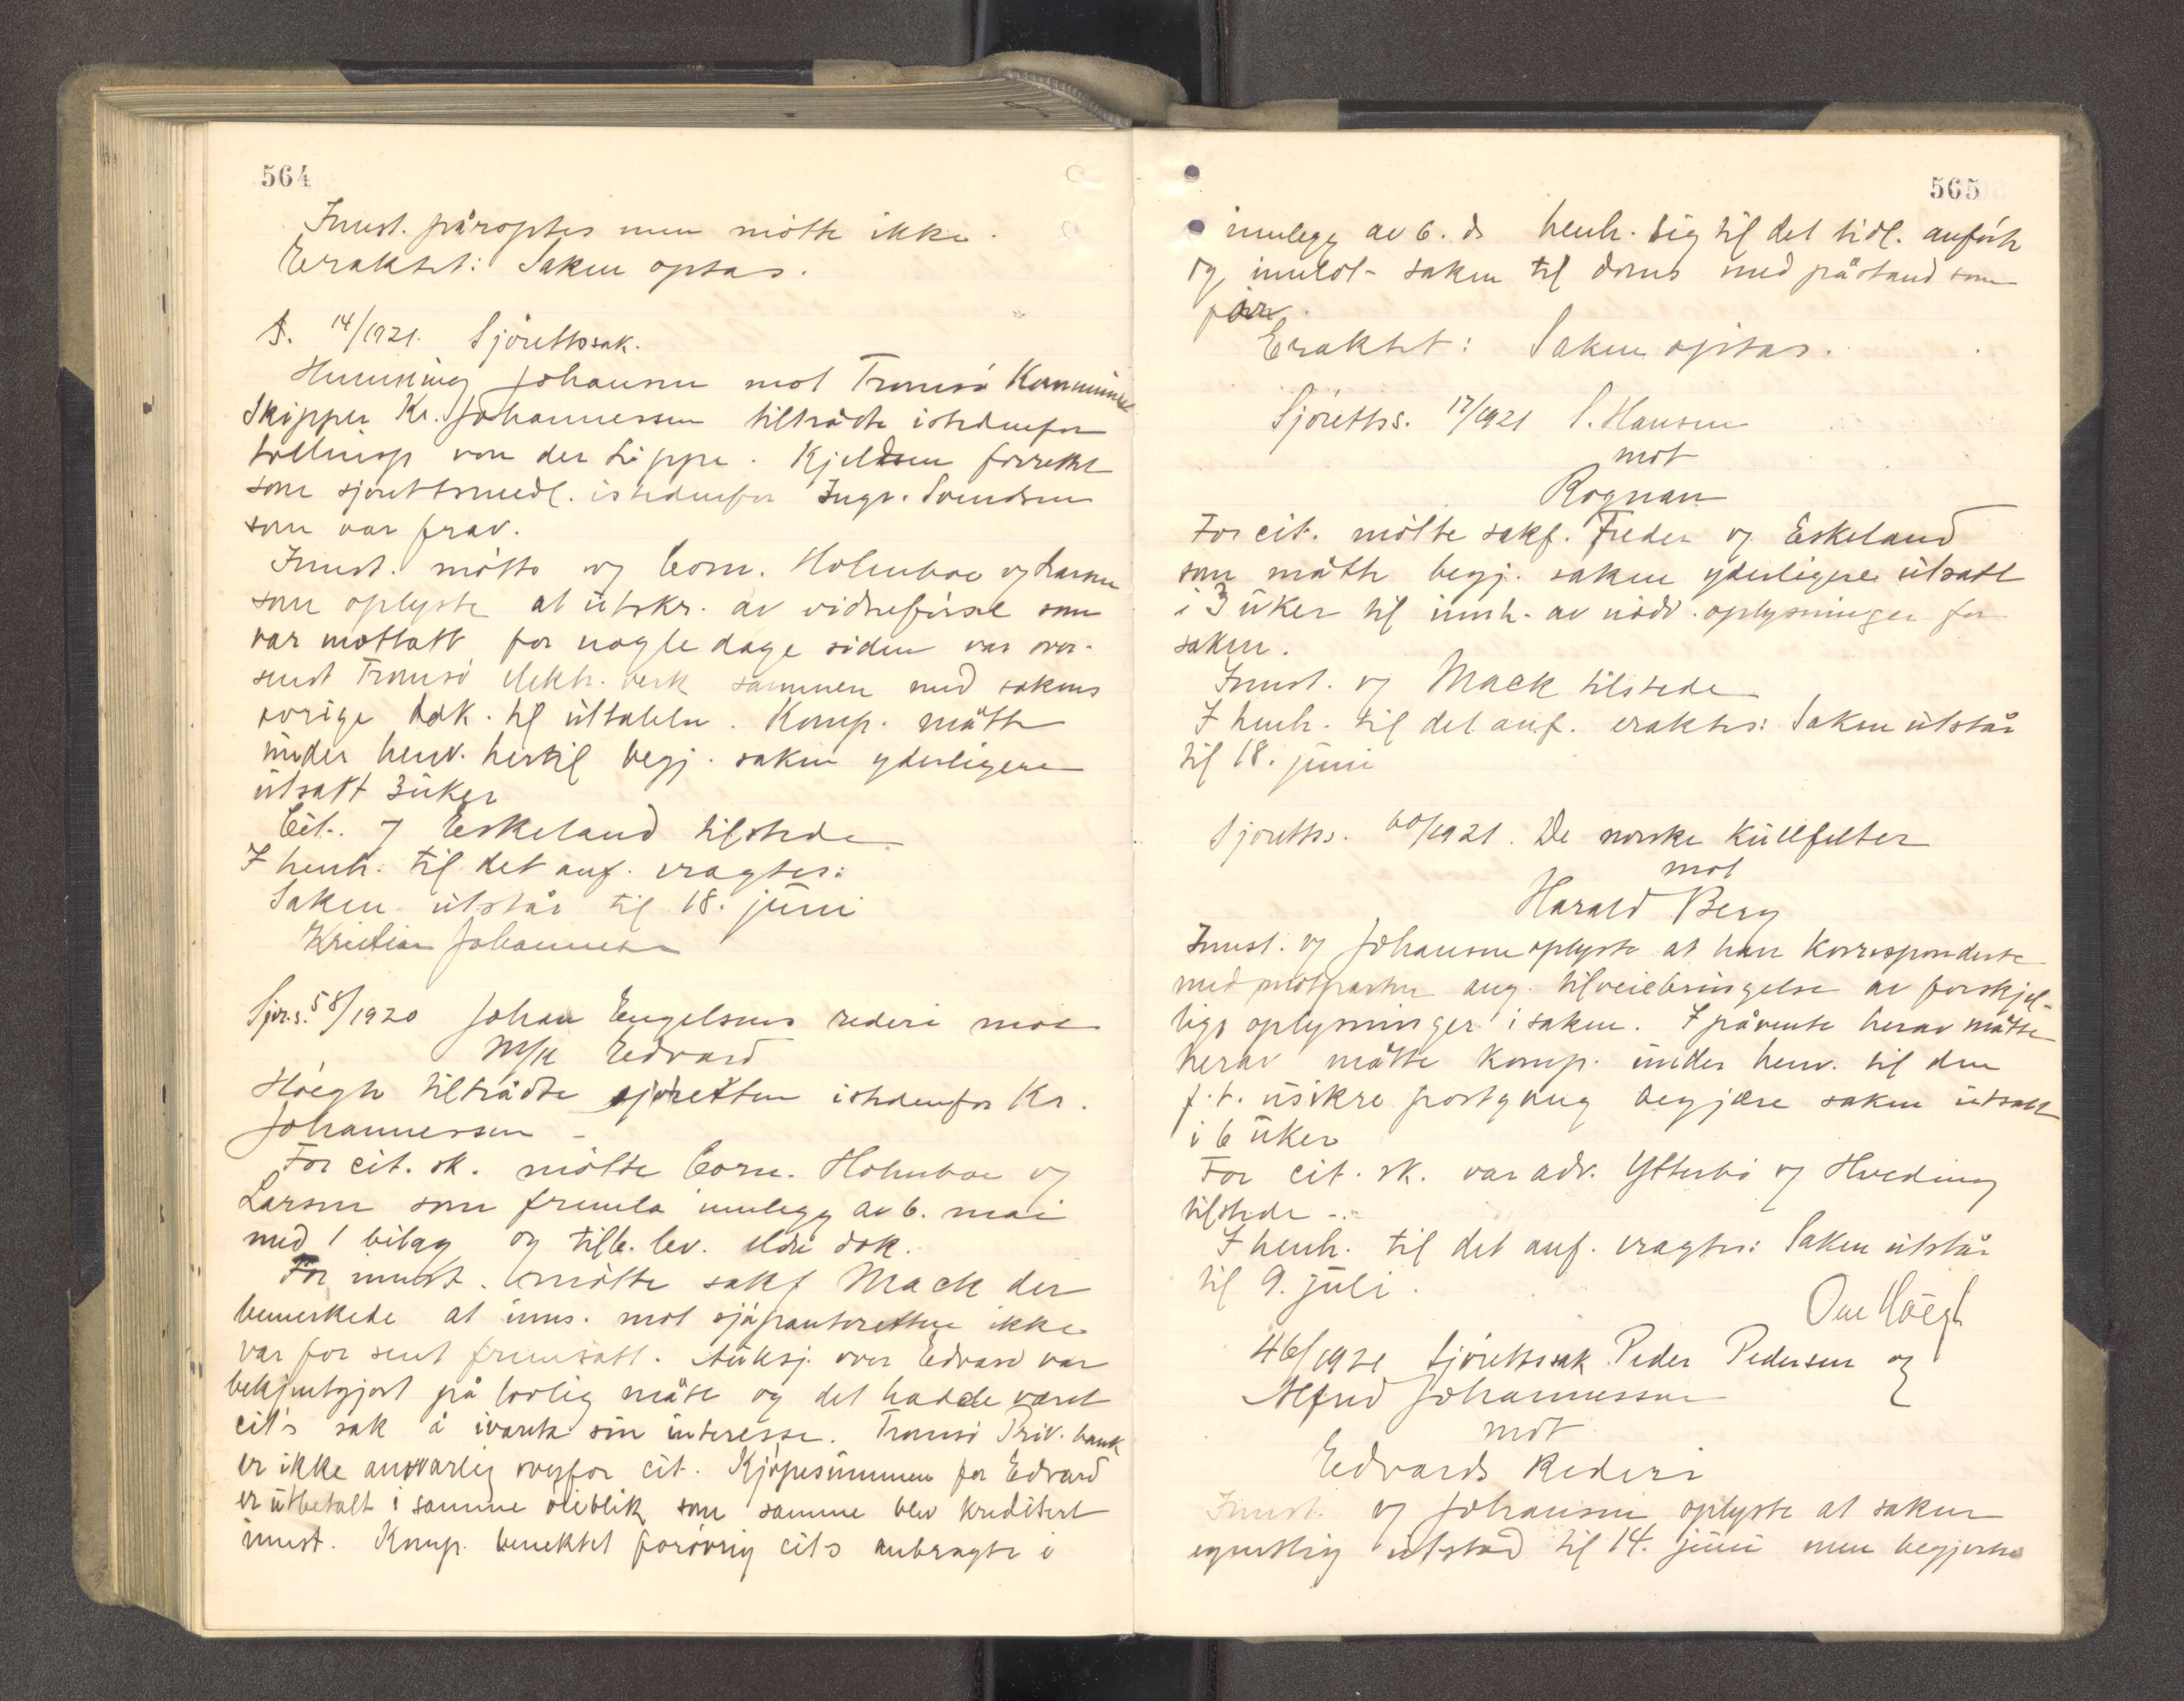 564
Innst. påroptes men møtte ikke.
Eraktet: Saken optas.
S. 14/1921. Sjørettssak.
Henning Johansen mot Tromsø Kommune
Skipper Kr. Johannessen tiltrådte istedenfor
tollinsp von der Lippe. Kjeldsen forrettet
som sjørettsmedl. istedenfor Ingv. Svendsen
som var frav.
Innst. møtte og Corn. Holmboe og Larsen
som oplyste at utskr. av vidneførsel som
var mottatt for nogle dage siden var over-
sendt Tromsø elektr. verk sammen med sakens
øvrige dok. til uttalelse. Komp. måtte
under henv. hertil begj. saken yderligere
utsatt 3 uker
Cit. og Eskeland tilstede
I henh. til det anf. eragtes:
Saken utstår til 18. juni
Kristian Johannessen
Sjør.s. 58/1920 Johan Engelsens rederi mot
M/K Edvard
Höegh tiltrådte sjøretten istedenfor Kr.
Johannessen –
For cit. sk. møtte Corn. Holmboe og
Larsen som fremla innlegg av 6. mai
med 1 bilag og tilb. lev. eldre dok.
For innst. møtte sakf Mack der
bemerkede at inns. mot sjøpanteretten ikke
var for sent fremsatt. Auksj. over Edvard var
bekjentgjort på lovlig måte og det hadde været
cit's sak å ivareta sin interesse. Tromsø Priv. bank
er ikke ansvarlig overfor cit. Kjøpesummen for Edvard
er utbetalt i samme øieblik som samme blev kreditert
innst. Komp. benektet forøvrig cit's anbragte i
565
innlegg av 6. ds henh. sig til det tidl. anførte
og innlot saken til doms med påstand som
før.
Eraktet: Saken optas.
Sjøretts. 17/1921 S. Hansen
mot
Rognan
For cit. møtte sakf. Feder og Eskeland
som måtte begj. saken yderligere utsatt
i 3 uker til innh. av nødv. oplysninger for
saken.
Innst. og Mack tilstede
I henh. til det anf. eraktes: Saken utstår
til 18. juni
Sjøretts. 60/1921. De norske Kullfelter
mot
Harald Berg
Innst. og Johansen oplyste at han korresponderte
med motparten ang. tilveiebringelse av forskjel-
lige oplysninger i saken. I påvente herav måtte
herav måtte komp. under henv. til den
f.t. usikre postgang begjære saken utsatt
i 6 uker
For cit. sk. var adv. Ytterbø og Hveding
tilstede –.
I henh. til det anf. eragtes: Saken utstår
til 9. juli.
Ove Höegh
46/1921 Sjørettssak Peder Pedersen og
Alfred Johannessen
mot
Edvards Rederi
Innst. og Johansen oplyste at saken
egentlig utstod til 14. juni men begjærte